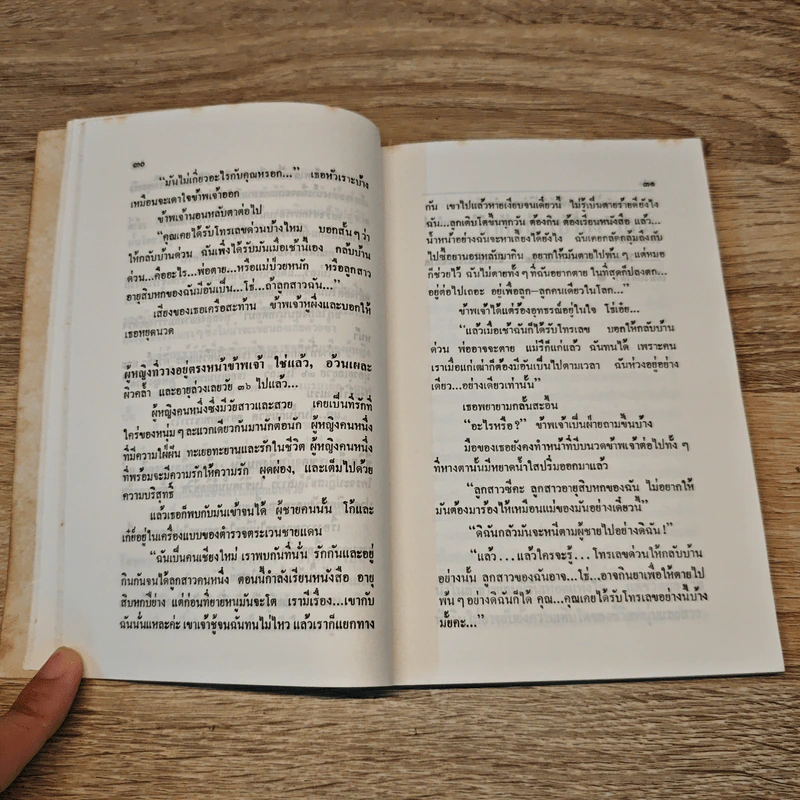 ๓๐
“มันไม่เกี่ยวอะไรกับคุณหรอก...” เธอหัวเราะบ้าง
เหมือนจะเดาใจข้าพเจ้าออก
ข้าพเจ้านอนหลับตาต่อไป
“คุณเคยได้รับโทรเลขด่วนบ้างไหม บอกสั้นๆ ว่า
ให้กลับบ้านด่วน ฉันเพิ่งได้รับมันเมื่อเช้านี้เอง กลับบ้าน
ด่วน...คืออะไร...พ่อตาย...หรือแม่ป่วยหนัก หรือลูกสาว
อายุสิบหกของฉันมีอันเป็น...โธ่...ถ้าลูกสาวฉัน...”
เสียงของเธอเครือสะท้าน ข้าพเจ้าหูผึ่งและบอกให้
เธอหยุดนวด
ผู้หญิงที่วางอยู่ตรงหน้าข้าพเจ้า ใช่แล้ว, อ้วนเผละ
ผิวคล้ำ และอายุล่วงเลยวัย ๓๖ ไปแล้ว...
ผู้หญิงคนหนึ่งซึ่งมีวัยสาวและสวย เคยเป็นที่รักที่
ใคร่ของหนุ่มๆ ละแวกเดียวกันมานักต่อนัก ผู้หญิงคนหนึ่ง
ที่มีความใฝ่ฝัน ทะเยอทะยานและรักในชีวิต ผู้หญิงคนหนึ่ง
ที่พร้อมจะมีความรักให้ความรัก ผุดผ่อง, และเต็มไปด้วย
ความบริสุทธิ์
แล้วเธอก็พบกับมันเข้าจนได้ ผู้ชายคนนั้น โก้และ
เก๋ยิ่งอยู่ในเครื่องแบบของตำรวจตระเวนชายแดน
“ฉันเป็นคนเชียงใหม่ เราพบกันที่นั่น รักกันและอยู่
กินกันจนได้ลูกสาวคนหนึ่ง ตอนนี้กำลังเรียนหนังสือ อายุ
สิบหกปีย่าง แต่ก่อนที่อายหนูมันจะโต เรามีเรื่อง...เขากับ
ฉันนั่นแหละค่ะ เขาเจ้าชู้จนฉันทนไม่ไหว แล้วเราก็แยกทาง
๓๑
กัน เขาไปแล้วหายเงียบจนเดี๋ยวนี้ ไม่รู้เป็นตายร้ายดียังไง
ฉัน...ลูกเติบโตขึ้นทุกวัน ต้องกิน ต้องเรียนหนังสือ แล้ว...
น้ำหน้าอย่างฉันจะหาเลี้ยงได้ยังไง ฉันเคยกลัดกลุ้มถึงกับ
ไปซื้อยานอนหลับมากิน อยากให้มันตายไปพ้นๆ แต่หมอ
ก็ช่วยไว้ ฉันไม่ตายทั้งๆ ที่ฉันอยากตาย ในที่สุดก็ปลงตก...
อยู่ต่อไปเถอะ อยู่เพื่อลูก–ลูกคนเดียวในโลก...”
ข้าพเจ้าได้แต่ร้องอุทธรณ์อยู่ในใจ โธ่เอ๋ย...
“แล้วเมื่อเช้าฉันก็ได้รับโทรเลข บอกให้กลับบ้าน
ด่วน พ่ออาจจะตาย แม่รึก็แก่แล้ว ฉันทนได้ เพราะคน
เราเมื่อแก่เฒ่าก็ต้องมีอันเป็นไปตามเวลา ฉันห่วงอยู่อย่าง
เดียว...อย่างเดียวเท่านั้น”
เธอพยายามกลั้นสะอื้น
“อะไรหรือ?” ข้าพเจ้าเป็นฝ่ายถามขึ้นบ้าง
มือของเธอยังคงทำหน้าที่บีบนวดข้าพเจ้าต่อไป ทั้งๆ
ที่หางตานั้นมีหยาดน้ำใสปริ่มออกมาแล้ว
“ลูกสาวซีคะ ลูกสาวอายุสิบหกของฉัน ไม่อยากให้
มันต้องมาร้องไห้เหมือนแม่ของมันอย่างเดี๋ยวนี้”
“ดิฉันกลัวมันจะหนีตามผู้ชายไปอย่างดิฉัน!”
“แล้ว...แล้วใครจะรู้... โทรเลขด่วนให้กลับบ้าน
อย่างนั้น ลูกสาวของฉันอาจ...โธ่...อาจกินยาเพื่อให้ตายไป
พ้นๆ อย่างดิฉันก็ได้ คุณ...คุณเคยได้รับโทรเลขอย่างนี้บ้าง
มั้ยคะ...”